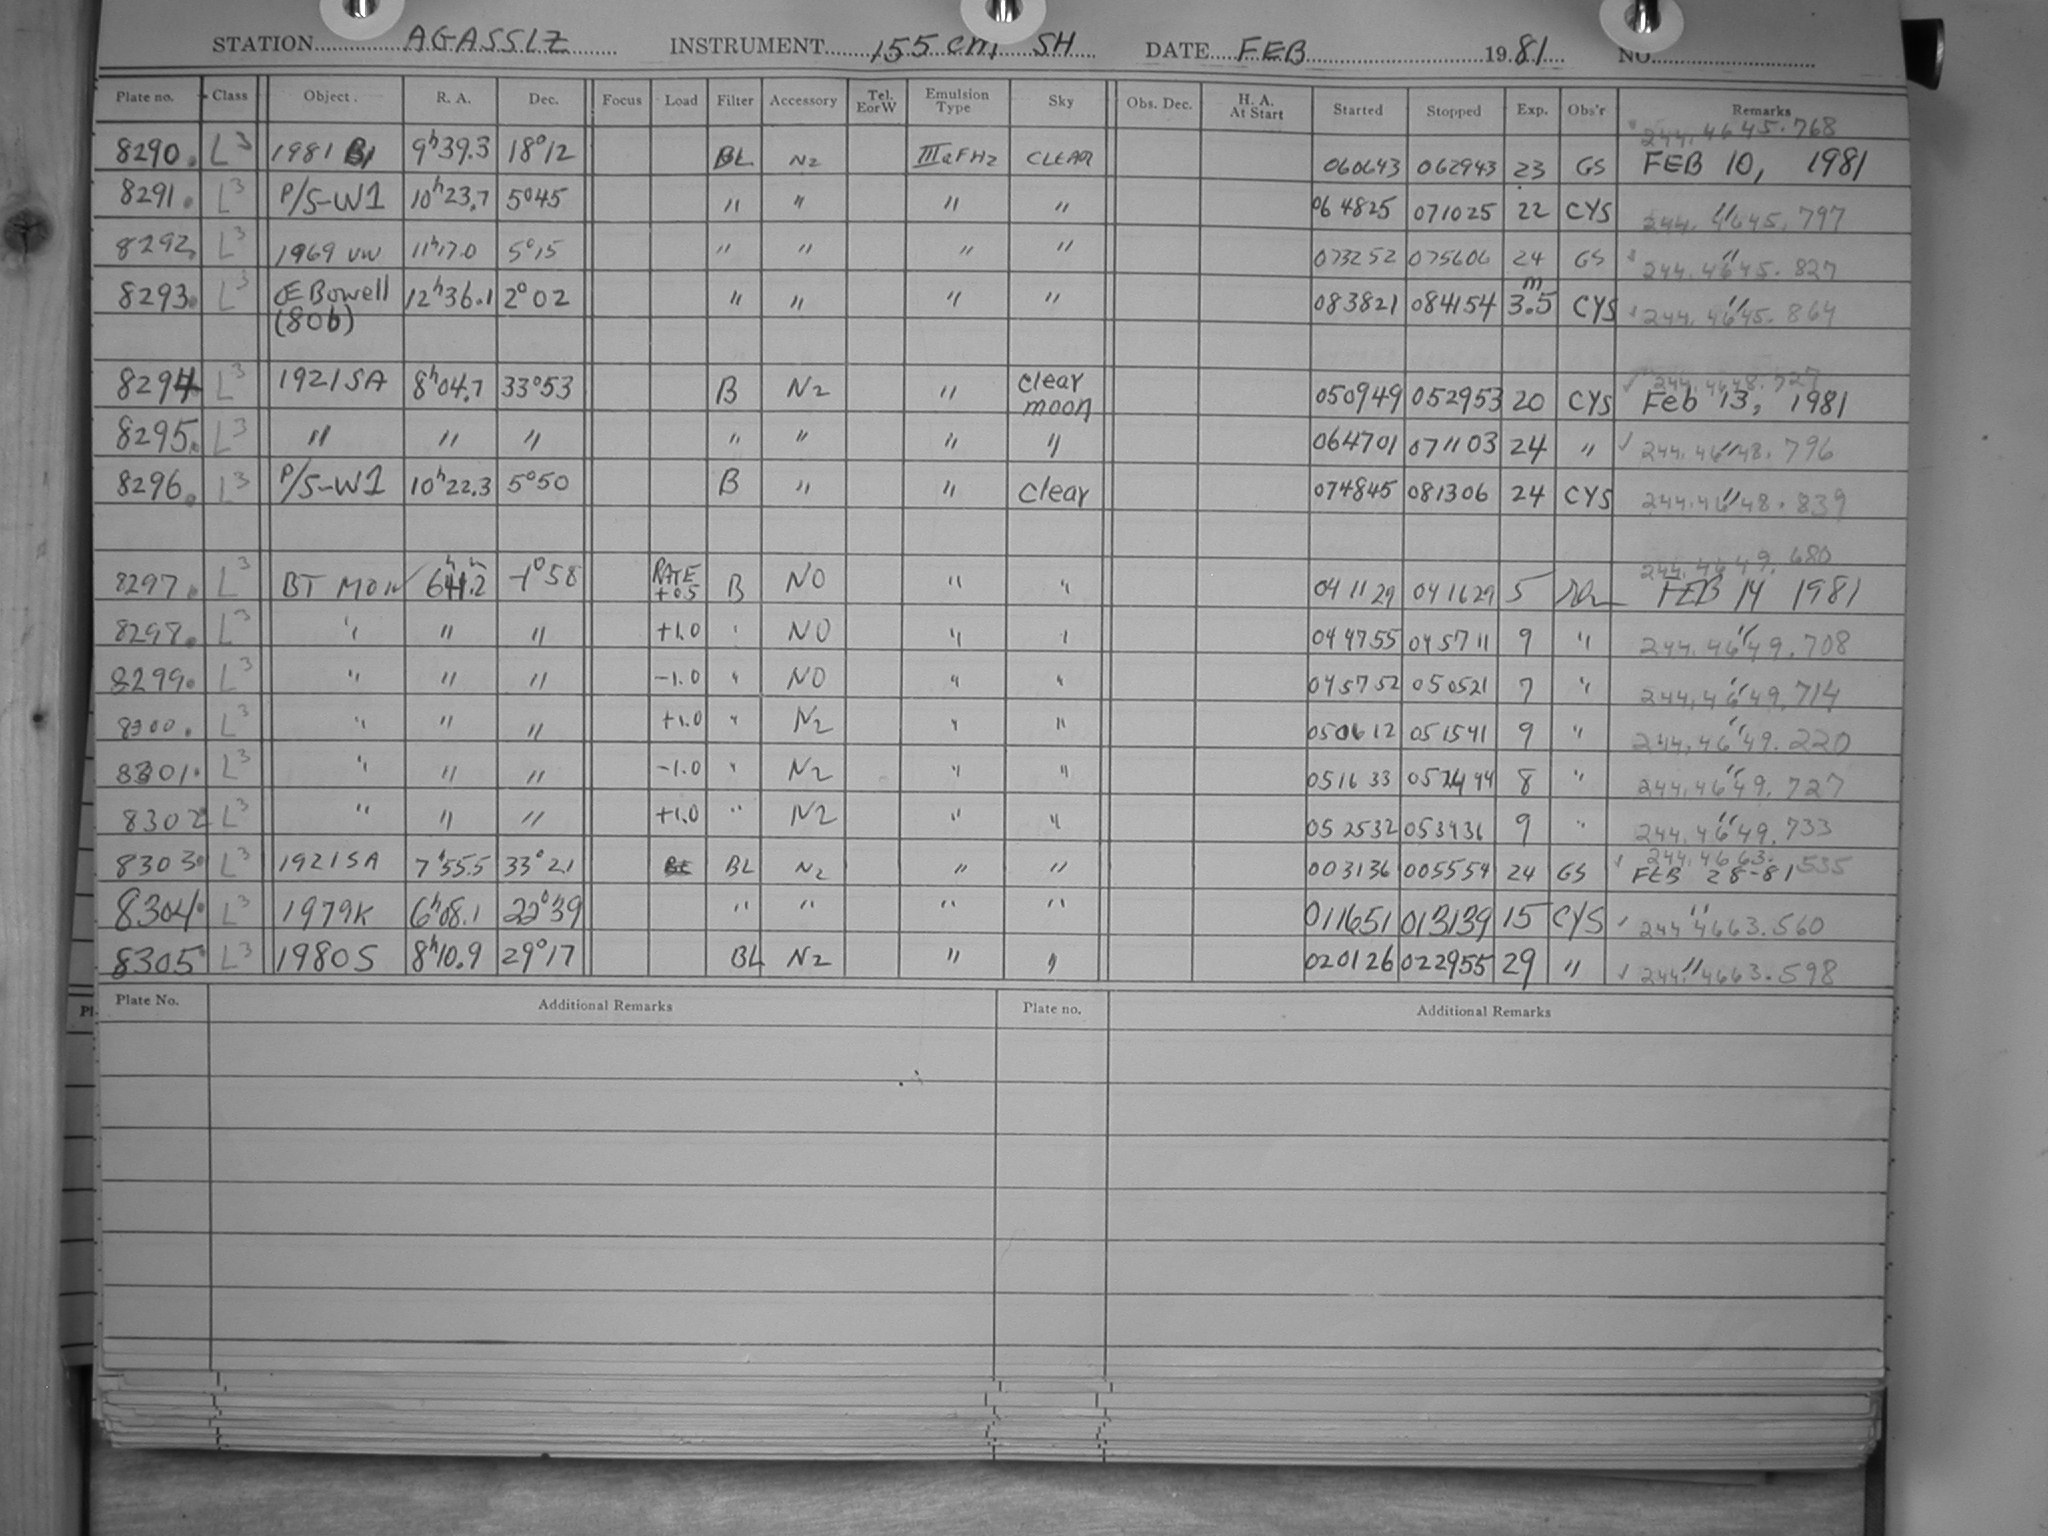 STATION AGASSIZ INSTRUMENT 155 cm SH DATE FEB 1981 NO.
Plate no. Class Object. R. A. Dec. Focus Load Filter Accessory Tel. EorW Emulsion Type Sky Obs. Dec. H. A. At Start Started Stopped Exp. Obs'r Remarks
244.4645.768
8290. L3 1981 B1 9h39.3 18°12 BL N2 IIIaFH2 CLEAR 060643 062943 23 GS FEB 10, 1981
8291. L3 P/S-W1 10h23.7 5°45 " " " " 064825 071025 22 CYS " 244.4645.797
8292. L3 1969 UW 11h17.0 5°15 " " " " 073252 075606 24 GS " 244.4645.827
8293. L3 Œ Bowell 12h36.1 2°02 " " " " 083821 084154 3.5m CYS " 244.4645.864
(80b)
244.4648.727
8294. L3 1921SA 8h04.7 33°53 B N2 " clear moon 050949 052953 20 CYS Feb 13, 1981
8295. L3 " " " " " " " 064701 071103 24 " " 244.4648.796
8296. L3 P/S-W1 10h22.3 5°50 B " " clear 074845 081306 24 CYS " 244.4648.839
244.4649.680
8297. L3 BT MON 6h41.2 -1°58 RATE +0.5 B NO " " 041129 041629 5 FEB 14 1981
8298. L3 " " " +1.0 " NO " " 044755 045711 9 " " 244.4649.708
8299. L3 " " " -1.0 " NO " " 045752 050521 7 " " 244.4649.714
8300. L3 " " " +1.0 " N2 " " 050612 051541 9 " " 244.4649.220
8301. L3 " " " -1.0 " N2 " " 051633 052444 8 " " 244.4649.727
8302 L3 " " " +1.0 " N2 " " 052532 053436 9 " " 244.4649.733
8303. L3 1921SA 7h55.5 33°21 BL N2 " " 003136 005554 24 GS 244.4663.535 FEB 28-81
8304. L3 1979K 6h08.1 22°39 " " " " 011651 013139 15 CYS " 244.4663.560
8305. L3 1980S 8h10.9 29°17 BL N2 " " 020126 022955 29 " " 244.4663.598
Plate No. Additional Remarks Plate no. Additional Remarks
Pl